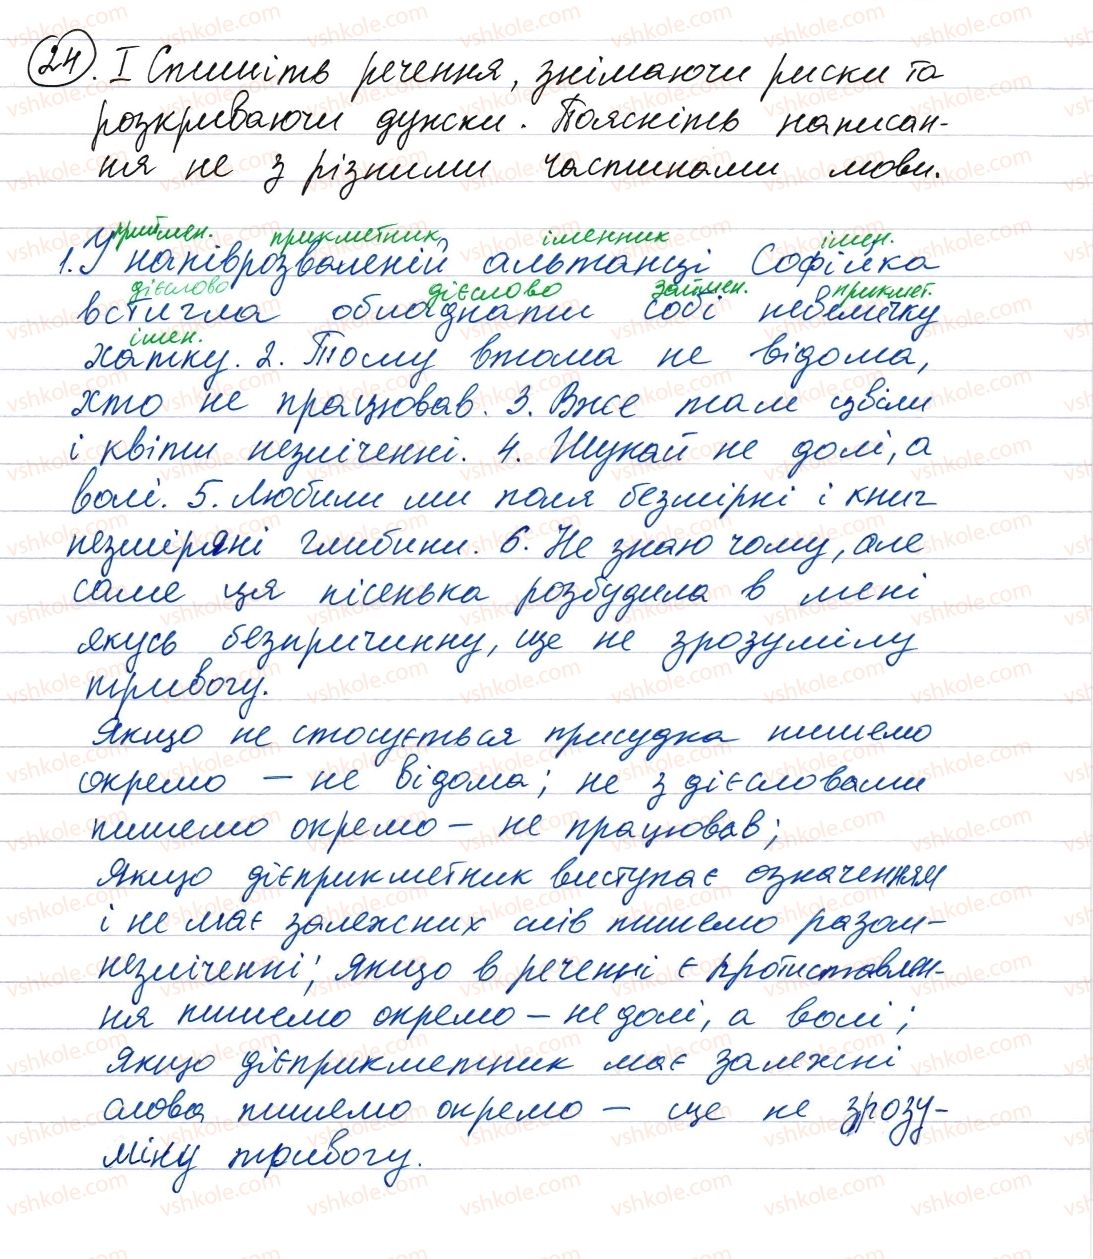 24. І Спишіть речення, знімаючи риски та
розкриваючи дужки. Поясніть написан-
ня не з різними частинами мови.
приймен. прикметник іменник імен.
1. У напіврозваленій альтанці Софійка
дієслово дієслово займен. прикмет.
встигла обладнати собі невеличку
імен.
хатку. 2. Тому втома не відома,
хто не працював. 3. Вже там цвіли
і квіти незліченні. 4. Шукай не долі, а
волі. 5. Любили ми поля безмірні і книг
незміряні глибини. 6. Не знаю чому, але
саме ця пісенька розбудила в мені
якусь безпричинну, ще не зрозумілу
тривогу.
Якщо не стосується присудка пишемо
окремо – не відома; не з дієсловами
пишемо окремо – не працював;
Якщо дієприкметник виступає означенням
і не має залежних слів пишемо разом-
незліченні; якщо в реченні є протиставлен-
ня пишемо окремо – не долі, а волі;
Якщо дієприкметник має залежні
слова пишемо окремо – ще не зрозу-
мілу тривогу.